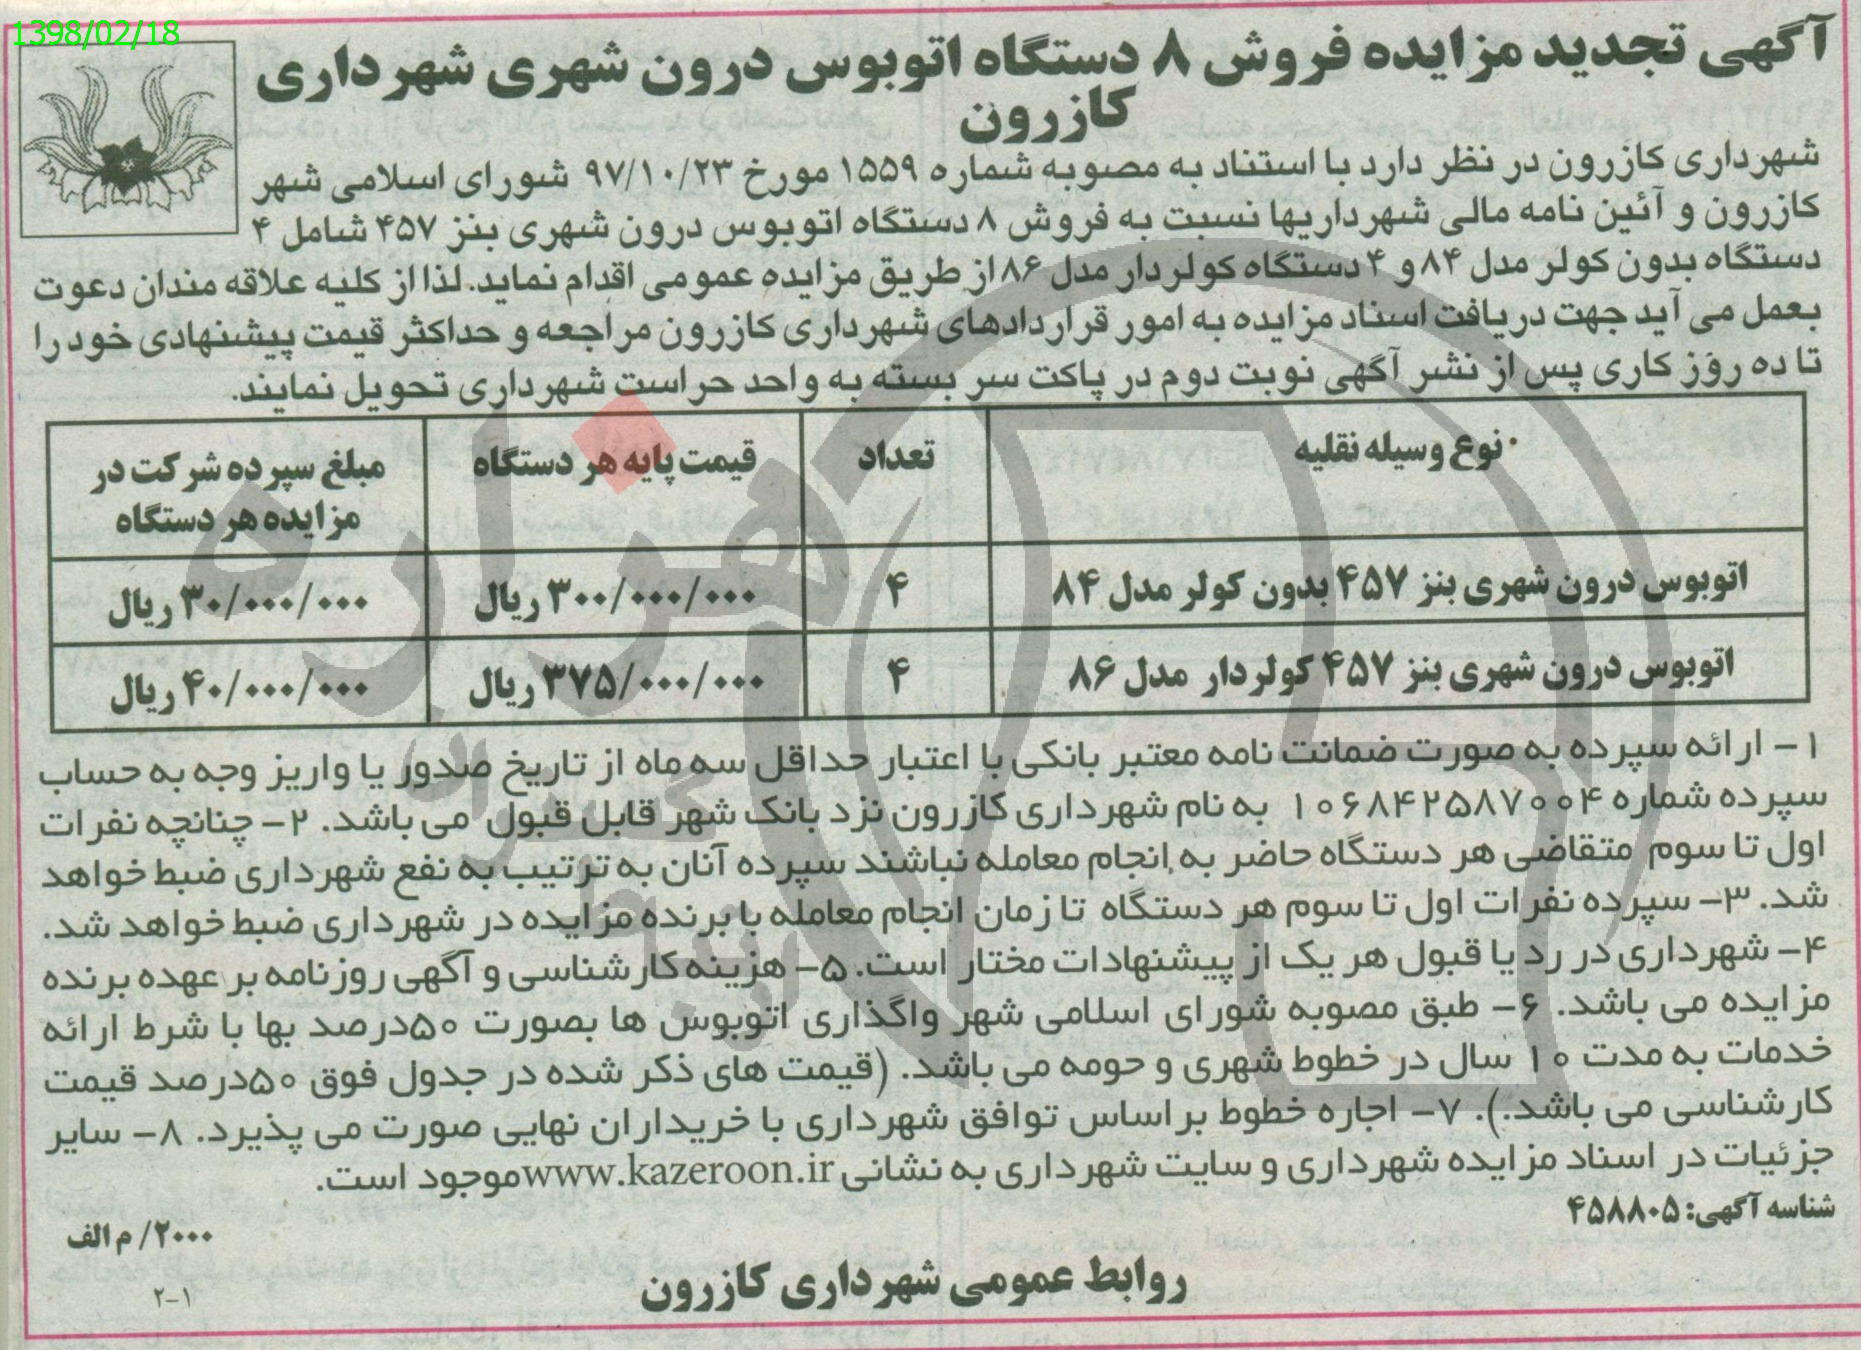 1398/02/18
آگهی تجدید مزایده فروش ۸ دستگاه اتوبوس درون شهری شهرداری
کازرون
شهرداری کازرون در نظر دارد با استناد به مصوبه شماره ۱۵۵۹ مورخ ۹۷/۱۰/۲۳ شورای اسلامی شهر
کازرون و آئین نامه مالی شهرداریها نسبت به فروش ۸ دستگاه اتوبوس درون شهری بنز ۴۵۷ شامل ۴
دستگاه بدون کولر مدل ۸۴ و ۴ دستگاه کولردار مدل ۸۶ از طریق مزایده عمومی اقدام نماید. لذا از کلیه علاقه مندان دعوت
بعمل می آید جهت دریافت اسناد مزایده به امور قراردادهای شهرداری کازرون مراجعه و حداکثر قیمت پیشنهادی خود را
تا ده روز کاری پس از نشر آگهی نوبت دوم در پاکت سر بسته به واحد حراست شهرداری تحویل نمایند.
نوع وسیله نقلیه تعداد قیمت پایه هر دستگاه مبلغ سپرده شرکت در
مزایده هر دستگاه
اتوبوس درون شهری بنز ۴۵۷ بدون کولر مدل ۸۴ ۴ ۳۰۰/۰۰۰/۰۰۰ ریال ۳۰/۰۰۰/۰۰۰ ریال
اتوبوس درون شهری بنز ۴۵۷ کولردار مدل ۸۶ ۴ ۳۷۵/۰۰۰/۰۰۰ ریال ۴۰/۰۰۰/۰۰۰ ریال
۱- ارائه سپرده به صورت ضمانت نامه معتبر بانکی با اعتبار حداقل سه ماه از تاریخ صدور یا واریز وجه به حساب
سپرده شماره ۱۰۶۸۴۲۵۸۷۰۰۴ به نام شهرداری کازرون نزد بانک شهر قابل قبول می باشد. ۲- چنانچه نفرات
اول تا سوم متقاضی هر دستگاه حاضر به انجام معامله نباشند سپرده آنان به ترتیب به نفع شهرداری ضبط خواهد
شد. ۳- سپرده نفرات اول تا سوم هر دستگاه تا زمان انجام معامله با برنده مزایده در شهرداری ضبط خواهد شد.
۴- شهرداری در رد یا قبول هر یک از پیشنهادات مختار است. ۵- هزینه کارشناسی و آگهی روزنامه بر عهده برنده
مزایده می باشد. ۶- طبق مصوبه شورای اسلامی شهر واگذاری اتوبوس ها بصورت ۵۰درصد بها با شرط ارائه
خدمات به مدت ۱۰ سال در خطوط شهری و حومه می باشد. (قیمت های ذکر شده در جدول فوق ۵۰درصد قیمت
کارشناسی می باشد.). ۷- اجاره خطوط براساس توافق شهرداری با خریداران نهایی صورت می پذیرد. ۸- سایر
جزئیات در اسناد مزایده شهرداری و سایت شهرداری به نشانی www.kazeroon.ir موجود است.
شناسه آگهی: ۴۵۸۸۰۵
۲۰۰۰/ م الف
روابط عمومی شهرداری کازرون
۲-۱
هزاره